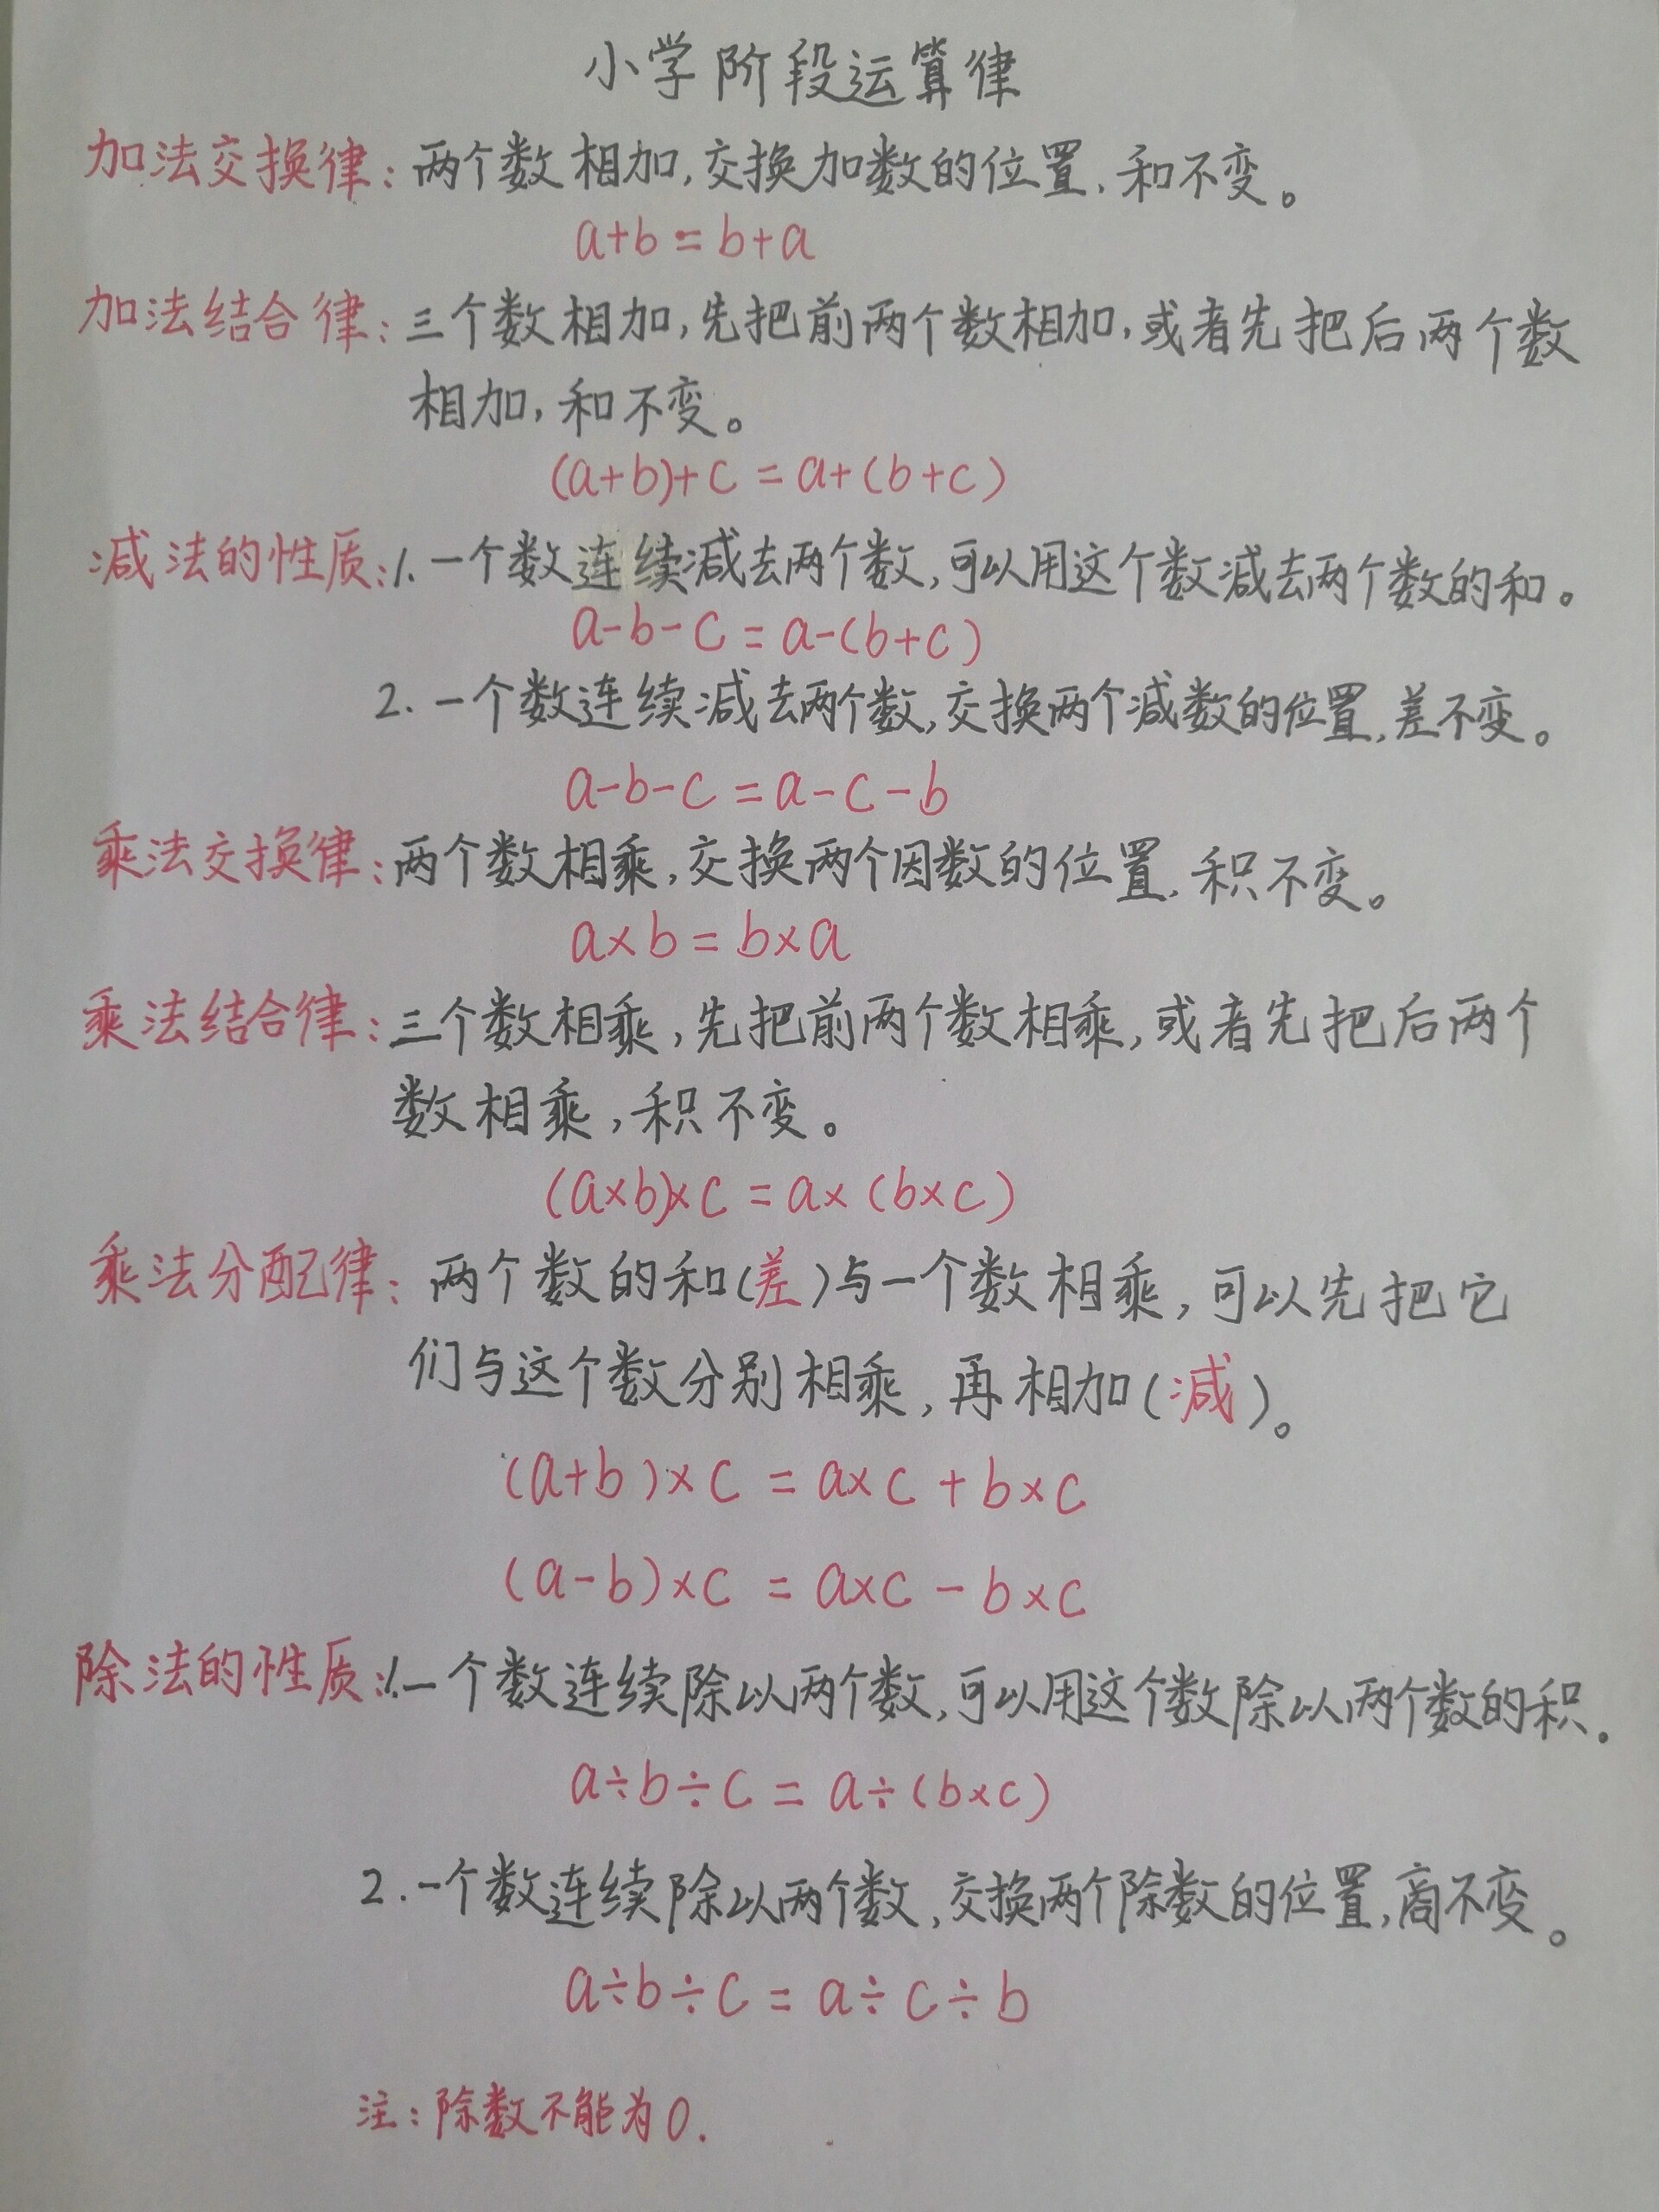 小学阶段运算律
加法交换律：两个数相加，交换加数的位置，和不变。
a+b=b+a
加法结合律：三个数相加，先把前两个数相加，或者先把后两个数
相加，和不变。
(a+b)+c=a+(b+c)
减法的性质：1.一个数连续减去两个数，可以用这个数减去两个数的和。
a-b-c=a-(b+c)
2.一个数连续减去两个数，交换两个减数的位置，差不变。
a-b-c=a-c-b
乘法交换律：两个数相乘，交换两个因数的位置，积不变。
a×b=b×a
乘法结合律：三个数相乘，先把前两个数相乘，或者先把后两个
数相乘，积不变。
(a×b)×c=a×(b×c)
乘法分配律：两个数的和(差)与一个数相乘，可以先把它
们与这个数分别相乘，再相加(减)。
(a+b)×c=a×c+b×c
(a-b)×c=a×c-b×c
除法的性质：1.一个数连续除以两个数，可以用这个数除以两个数的积.
a÷b÷c=a÷(b×c)
2.一个数连续除以两个数，交换两个除数的位置，商不变。
a÷b÷c=a÷c÷b
注：除数不能为0.